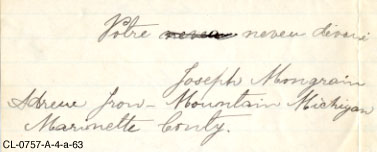 Votre neveu neveu dévoué
Joseph Mongrain
Adresse Iron-Mountain Michigan
Marionette Conty.
CL-0757-A-4-a-63